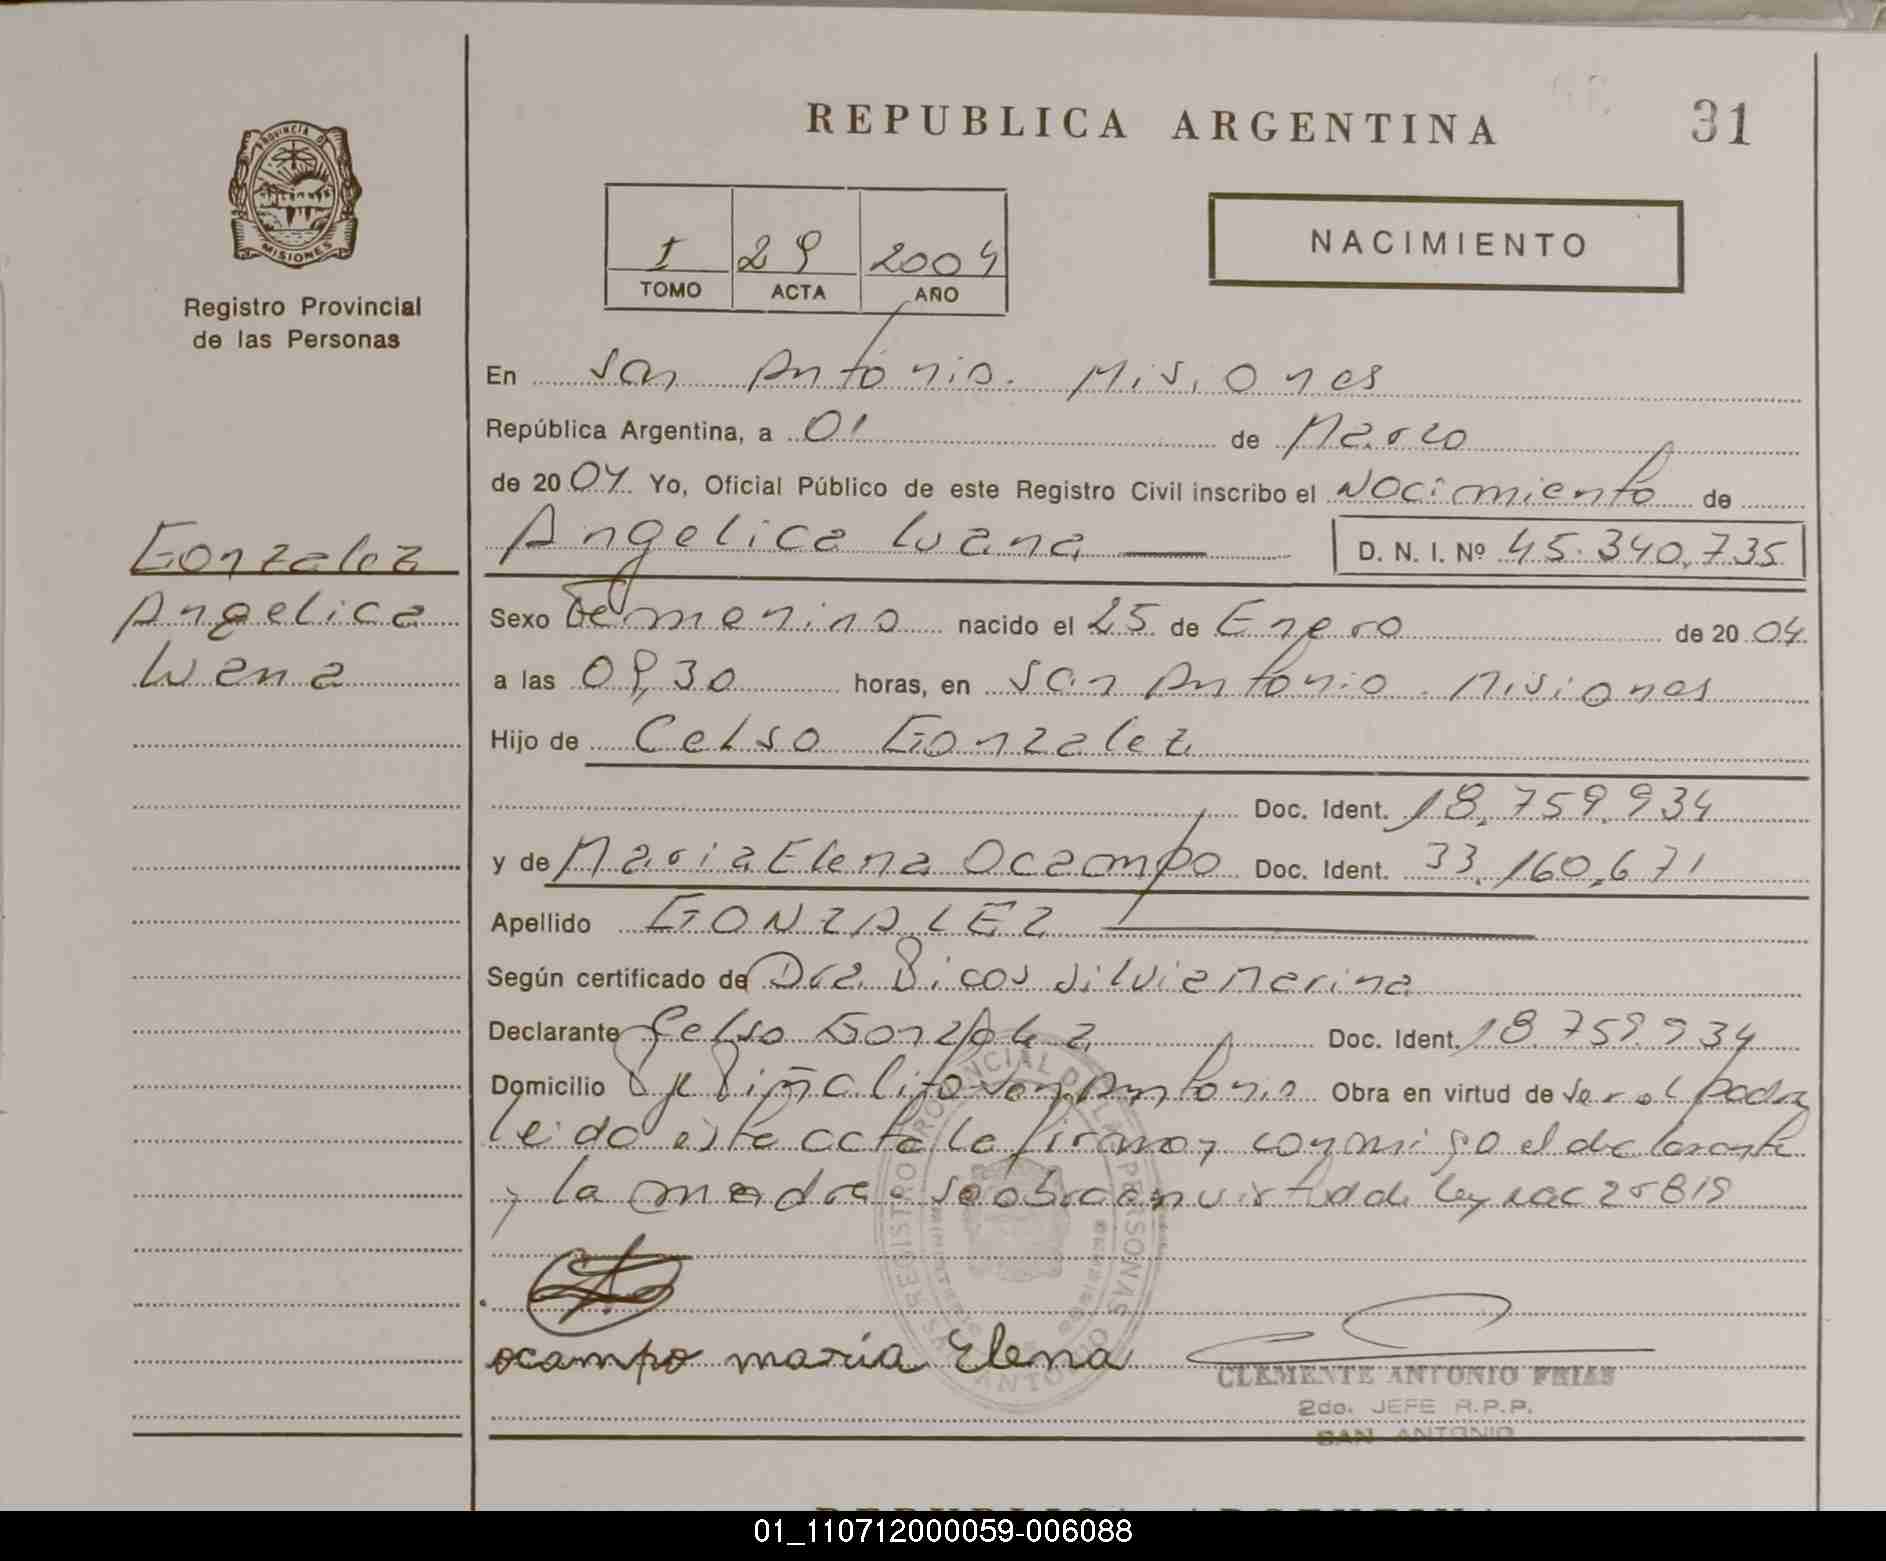 REPUBLICA ARGENTINA
31
PROVINCIA DE
MISIONES
Registro Provincial
de las Personas
I 29 2004
TOMO ACTA AÑO
NACIMIENTO
En San Antonio. Misiones
República Argentina, a 01 de Marzo
de 2004 Yo, Oficial Público de este Registro Civil inscribo el Nacimiento de
Angelica Luana D. N. I. Nº 45.340.735
Gonzalez
Angelica
Luana
Sexo Femenino nacido el 25 de Enero de 2004
a las 09,30 horas, en San Antonio. Misiones
Hijo de Celso Gonzalez
Doc. Ident. 18.759.934
y de Maria Elena Ocampo Doc. Ident. 33.160.671
Apellido GONZALEZ
Según certificado de Dra. Silvia Marina
Declarante Celso Gonzalez Doc. Ident. 18.759.934
Domicilio San Antonio Obra en virtud de ser el padre
leido este acta la firman conmigo el declarante
y la madre. se obra en virtud de ley nac 25819
ocampo maría Elena
CLEMENTE ANTONIO FRIAS
2do. JEFE R.P.P.
SAN ANTONIO
REGISTRO PROVINCIAL DE LAS PERSONAS
01_110712000059-006088